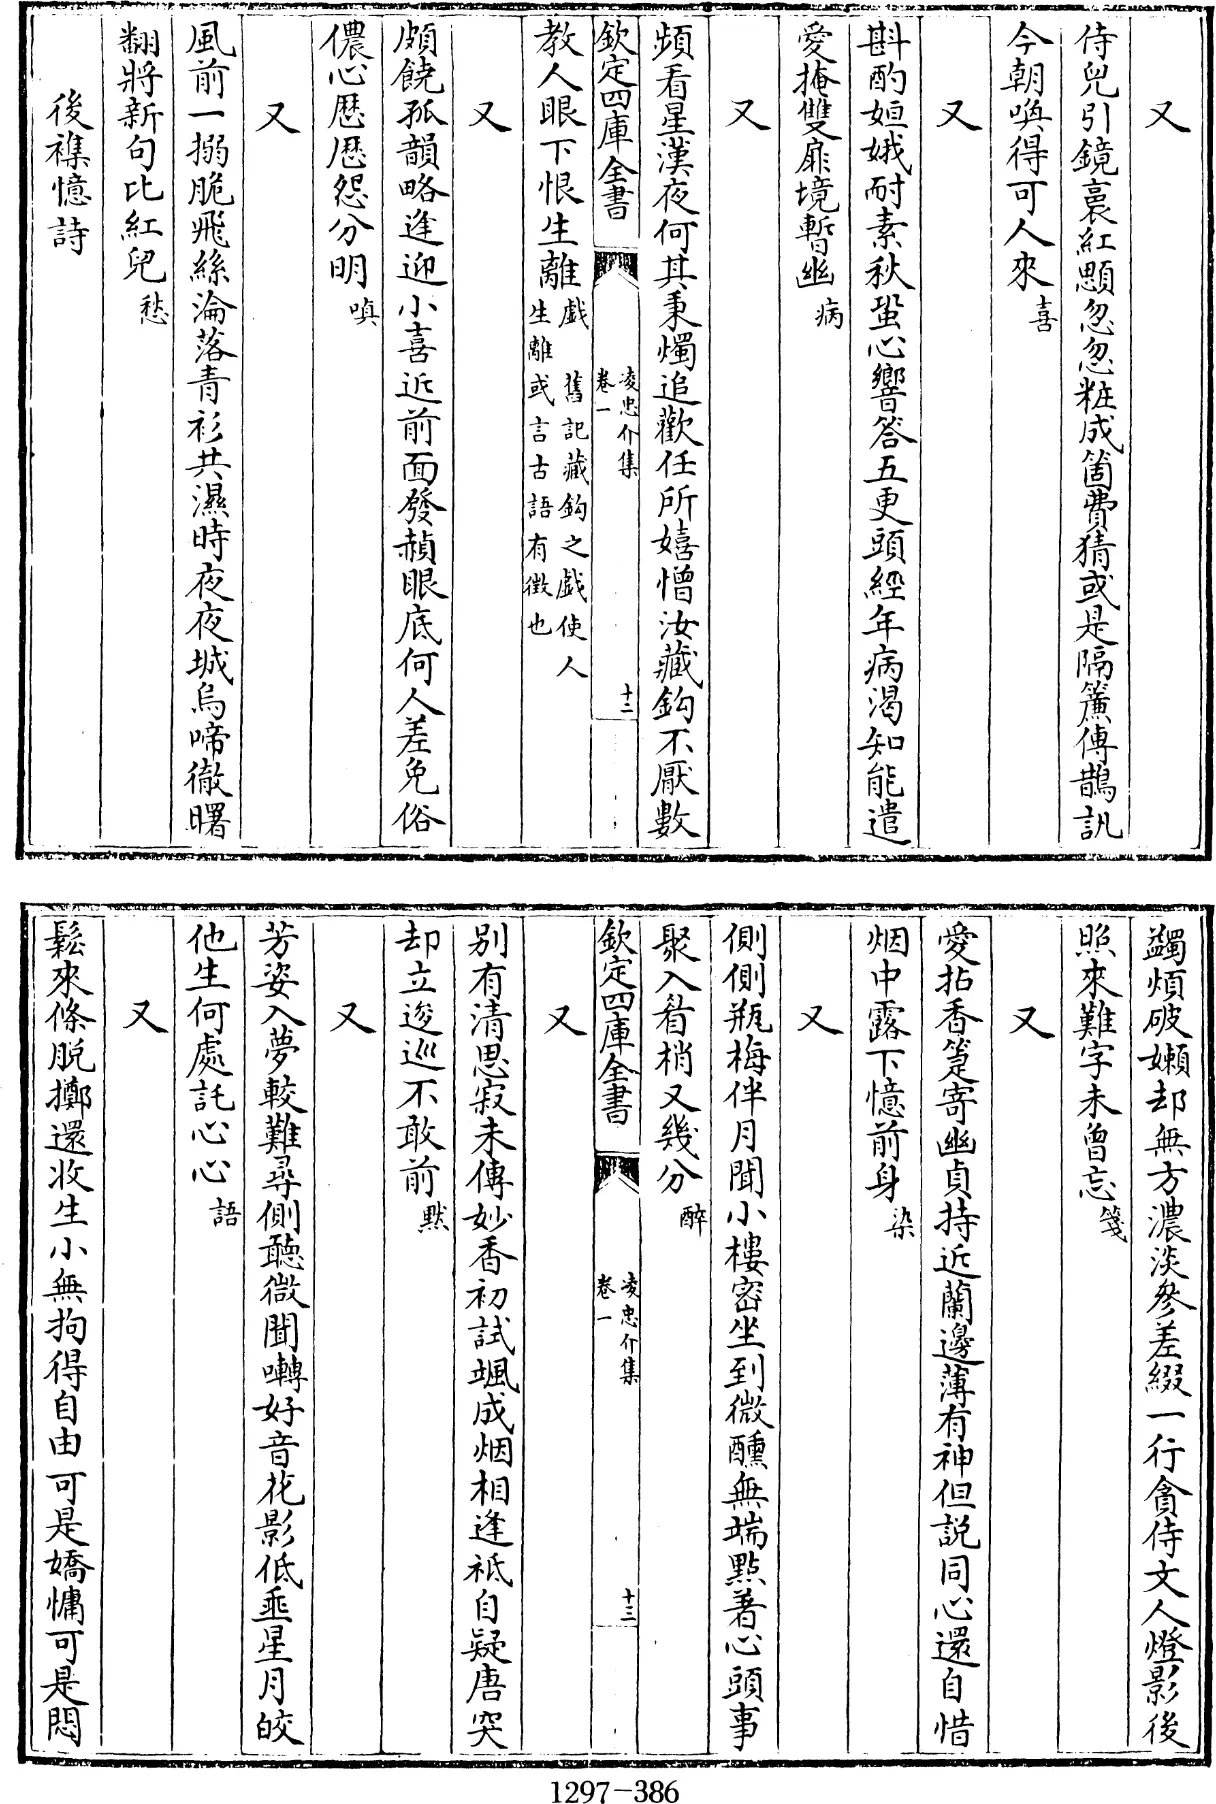 又
侍兒引鏡裛紅顋忽忽粧成箇費猜或是隔簾傳鵲訊
今朝喚得可人來喜
又
斟酌姮娥耐素秋蛩心響答五更頭經年病渴知能遣
愛掩雙扉境暫幽病
又
頻看星漢夜何其秉燭追歡任所嬉憎汝藏鈎不厭數
欽定四庫全書
凌忠介集
卷一
十二
教人眼下恨生離戯 舊記藏鈎之戯使人
生離或言古語有徴也
又
頗饒孤韻略逢迎小喜近前面發赬眼底何人差免俗
儂心歴歴怨分明嗔
又
風前一搦脆飛絲淪落青衫共濕時夜夜城烏啼徹曙
翻將新句比紅兒愁
後襍憶詩
蠲煩破嬾却無方濃淡參差綴一行貪侍文人燈影後
照來難字未曾忘箋
又
愛拈香筆寄幽貞持近蘭邊薄有神但説同心還自惜
烟中露下憶前身染
又
側側瓶梅伴月聞小樓密坐到微醺無端點著心頭事
聚入眉梢又幾分醉
欽定四庫全書
凌忠介集
卷一
十三
又
别有清思寂未傳妙香初試颯成烟相逢祗自疑唐突
却立逡巡不敢前黙
又
芳姿入夢較難尋側聽微聞囀好音花影低垂星月皎
他生何處託心心語
又
鬆來條脱擲還收生小無拘得自由可是嬌慵可是悶
1297-386